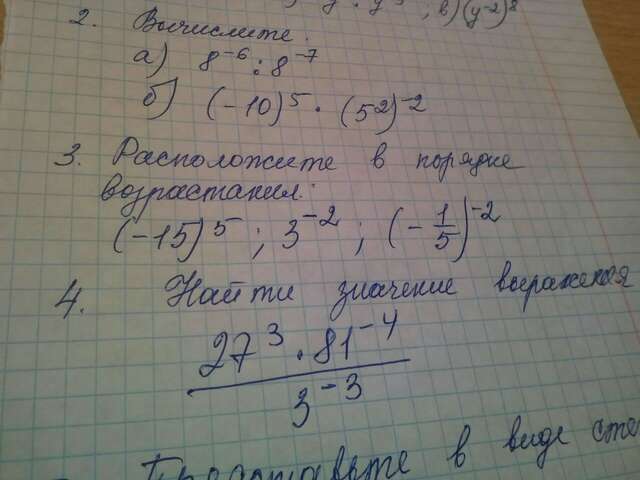 ; в) (y⁻²)⁸
2. Вычислите:
а) 8⁻⁶ : 8⁻⁷
б) (-10)⁵ · (5²)⁻²
3. Расположите в порядке
возрастания:
(-15)⁵ ; 3⁻² ; (-1/5)⁻²
4. Найти значение выражения
27³ · 81⁻⁴
3⁻³
в виде